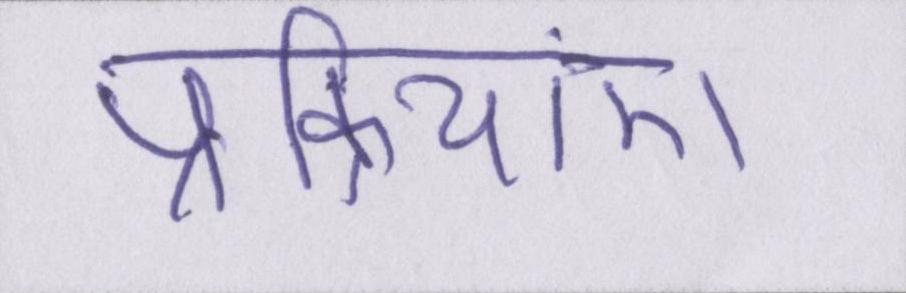 प्रक्रियांए।